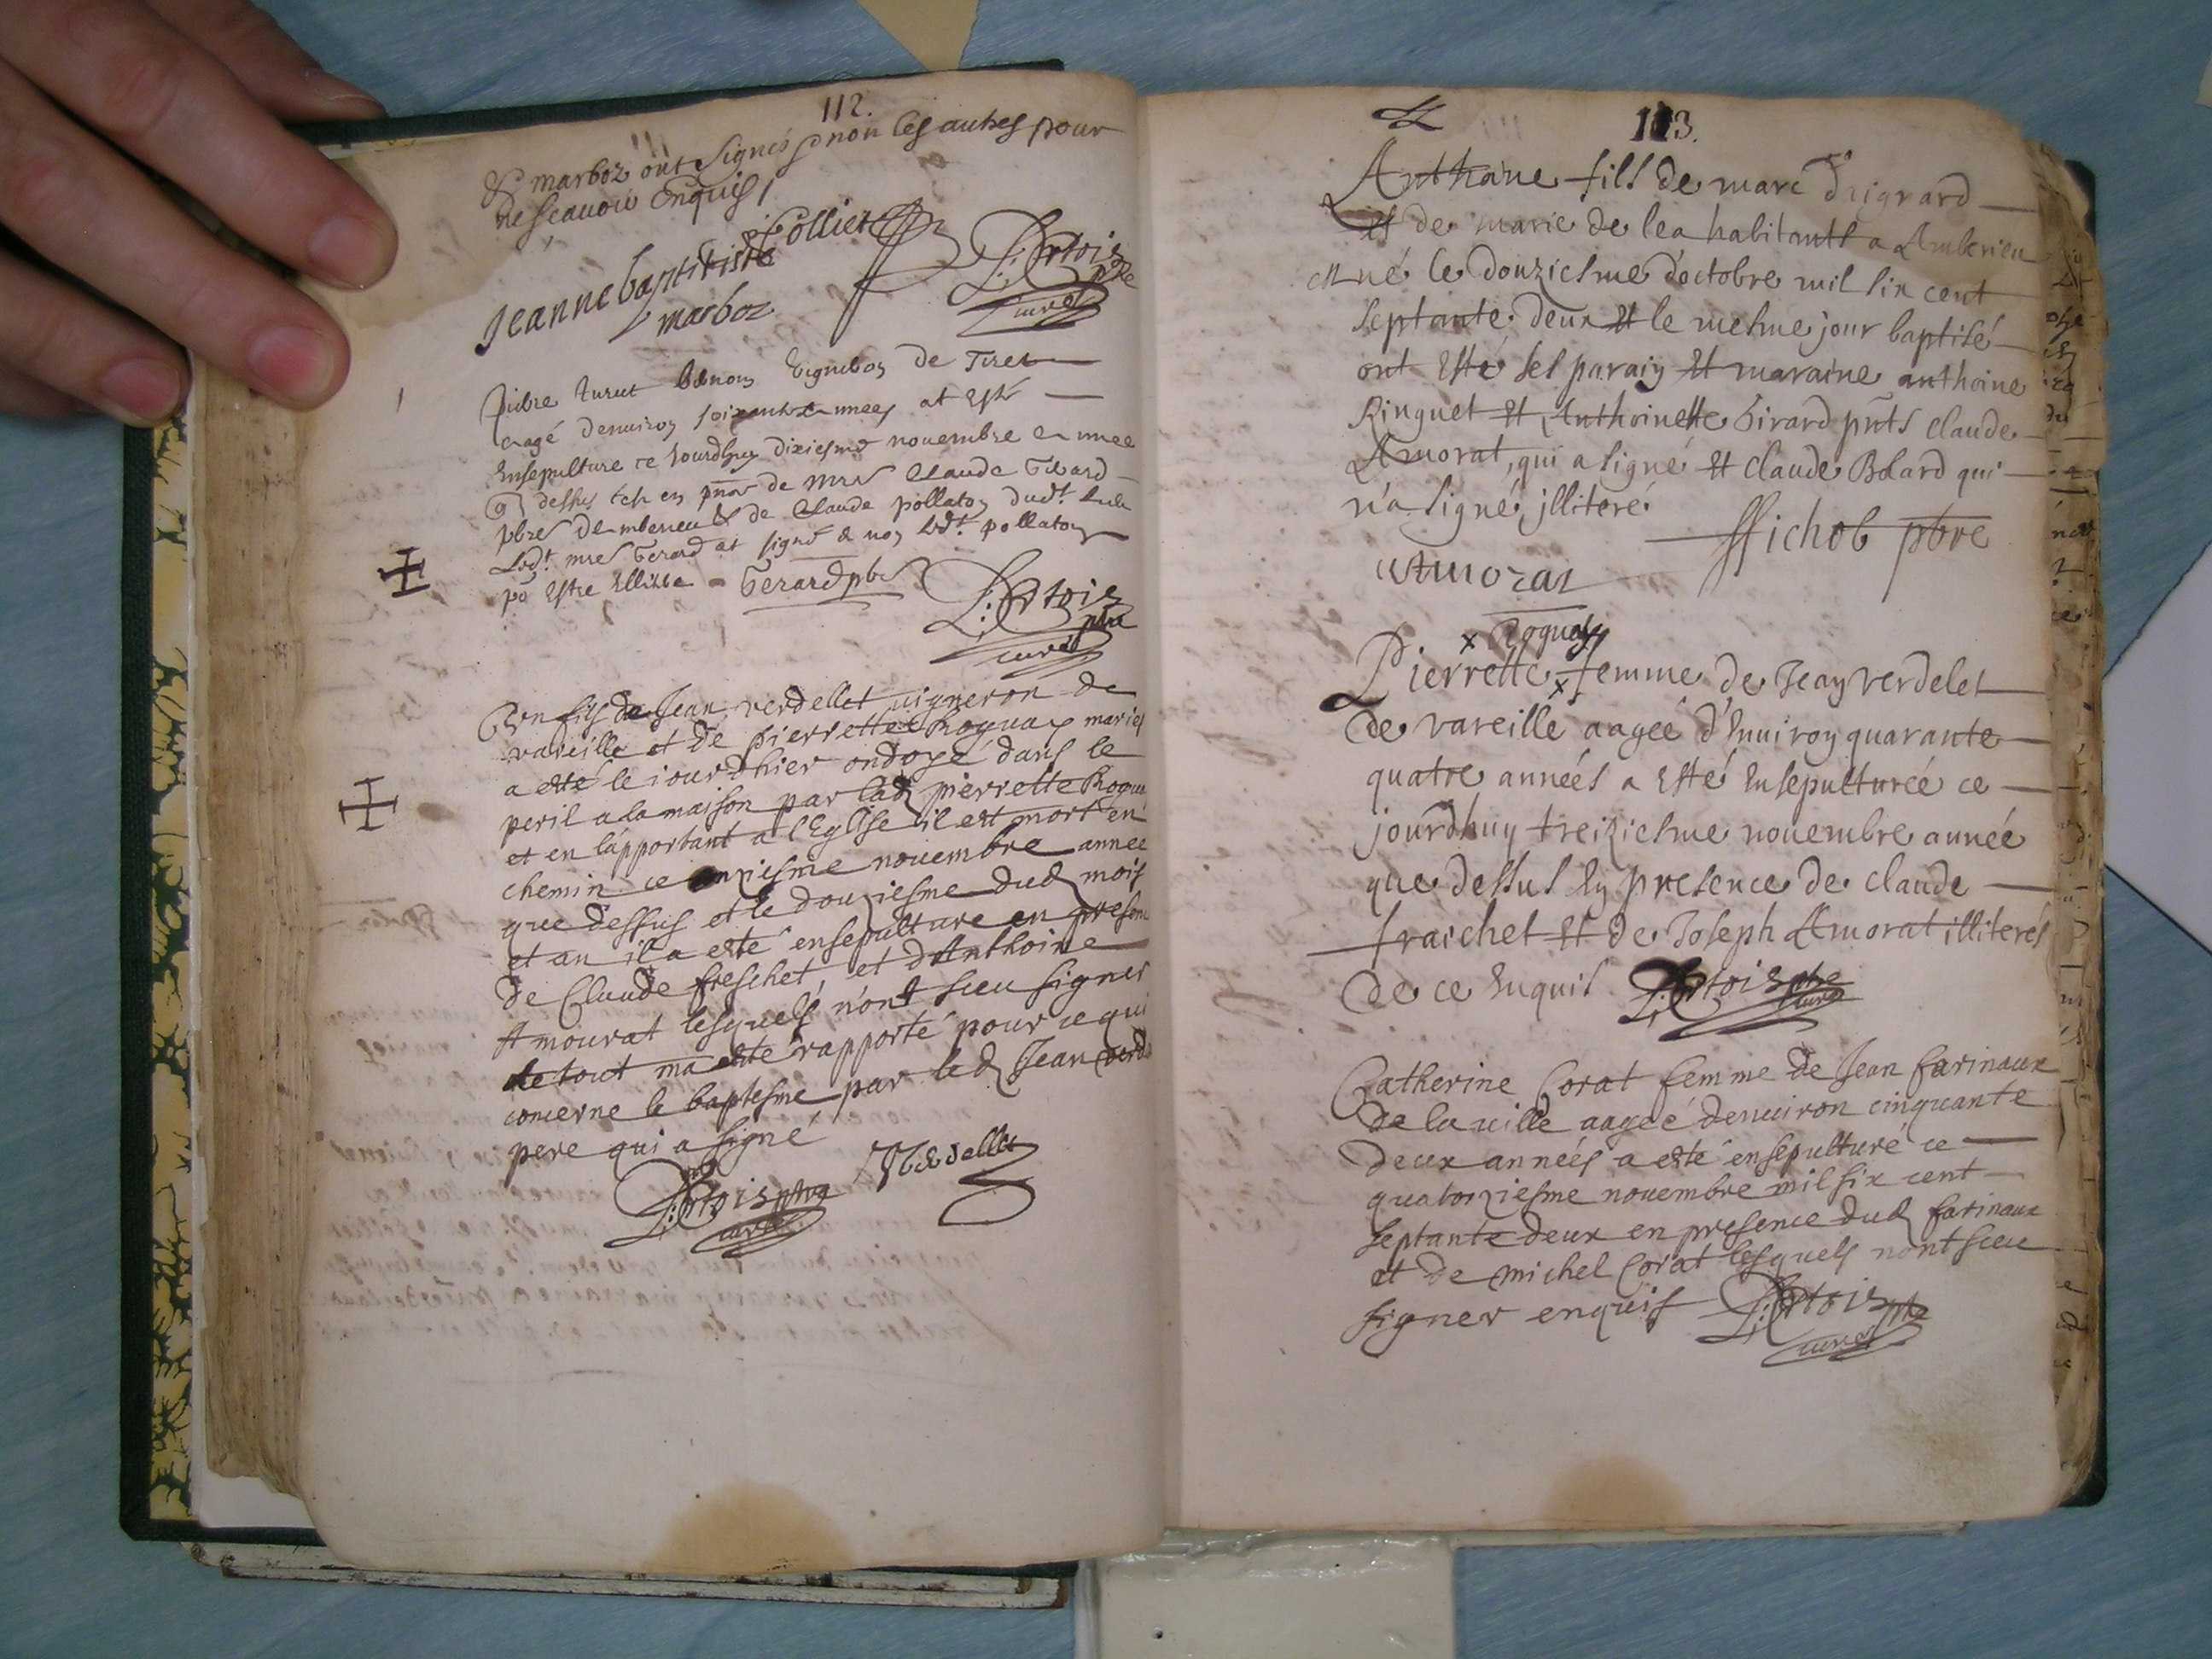 112.
& marboz ont signés & non les autres pour
ne scauoir Enquis /
Jeanne baptiste Colliet L: Ortois pbre
marboz curé
Vigneron de Tiret
eagé denuiron soixante annees at Esté
Ensepulture ce Jourdhuy dixiesme nouembre année
q dessus en de mre Claude Gerard
pbre et de Claude pollaton dud.t lieu
Led.t mre Gerard at signé & non led.t pollaton
po Estre Gerard pbr
L: Ortois pbre
curé
Un fils de Jean verdellet uigneron de
vareille et de pierrette Roguax mariés
a esté le iourdhier ondoyé dans le
peril a la maison par lad pierrette Rogua
et en l'apportant a l'Eglise il est mort en
chemin ce onziesme nouembre annee
que dessus et le douziesme dud mois
et an il a esté ensepulture en presen
de Claude freschet et d'Anthoine
Amourat lesquels n'ont sceu signer
de tout ma esté rapporté pour ce qui
concerne le baptesme par led Jean verd
pere qui a signé
L: Ortois pbre Verdellet
curé
113.
Anthoine fils de marc
et de marie de lea habitants a Amberieu
est né le douziesme d'octobre mil six cent
septante deux et le mesme jour baptisé
ont Esté ses parain et maraine anthoine
Ringuet et Anthoinette Girard pnts claude
Amorat, qui a signé et claude Bolard qui
n'a signé, jlliteré
Michol pbre
Amorat
x Roguax
Pierrette x femme de Jean verdelet
de vareille aageé d'Enuiron quarante
quatre années a Esté Ensepulturcé ce
jourdhuy treiziesme nouembre année
que dessus En presence de claude
fraichet et de Joseph Amorat illiterés
de ce Enquis L: Ortois pbre
curé
Catherine Corat femme de Jean farinaux
de la uille aageé denuiron cinquante
deux années a esté ensepulturé ce
quatorziesme nouembre mil six cent
septante deux en presence dud farinaux
et de michel Corat lesquels nont sceu
signer enquis L: Ortois pbre
curé